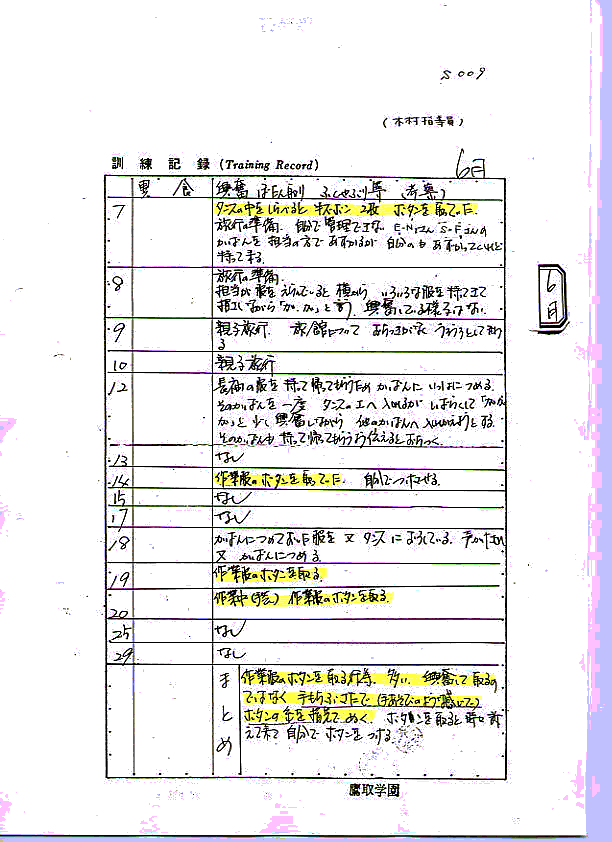 S009
(木村指導員)
訓練記録 (Training Record) 6月
異食 興奮 ぼたん取り
7 タンスの中をしらべると 半ズボン 2枚 ボタンを取っていた。
旅行の準備、自分で管理できない
かばんを 担当の方であずかるが 自分のも あずかってくれと
持って来る
8 旅行の準備
担当が服を えらんでいると 横から いろいろな服を持ってきて
と言う 興奮している様子はない。
9 親子旅行 旅館について うろうろとしている
る
10 親子旅行
12 長袖の服を 持って帰ってもらうため かばんに いっぱいつめる。
そのかばんを 一度 タンスの上へ 入れるが しばらくして
か」と 少し 興奮しながら 他のかばんへ 入れかえようとする
そのかばんも 持って帰ってもらうよう伝えると おちつく。
13 なし
14 作業服のボタンを取っていた。 自分でつけさせる。
15 なし
17 なし
18 かばんにつめておいた服を 又 タンスに
又 かばんにつめる。
19 作業服のボタンを取る。
20 作業中 作業服のボタンを取る。
25 なし
29 なし
まとめ 作業服のボタンを取る行為 多い。 興奮して取るの
ではなく 手もちぶさたで (手あそびのような感じで)
ボタンの糸を指先で ボタンを取ると
えて来て 自分で ボタンをつける。
鷹取学園
6月